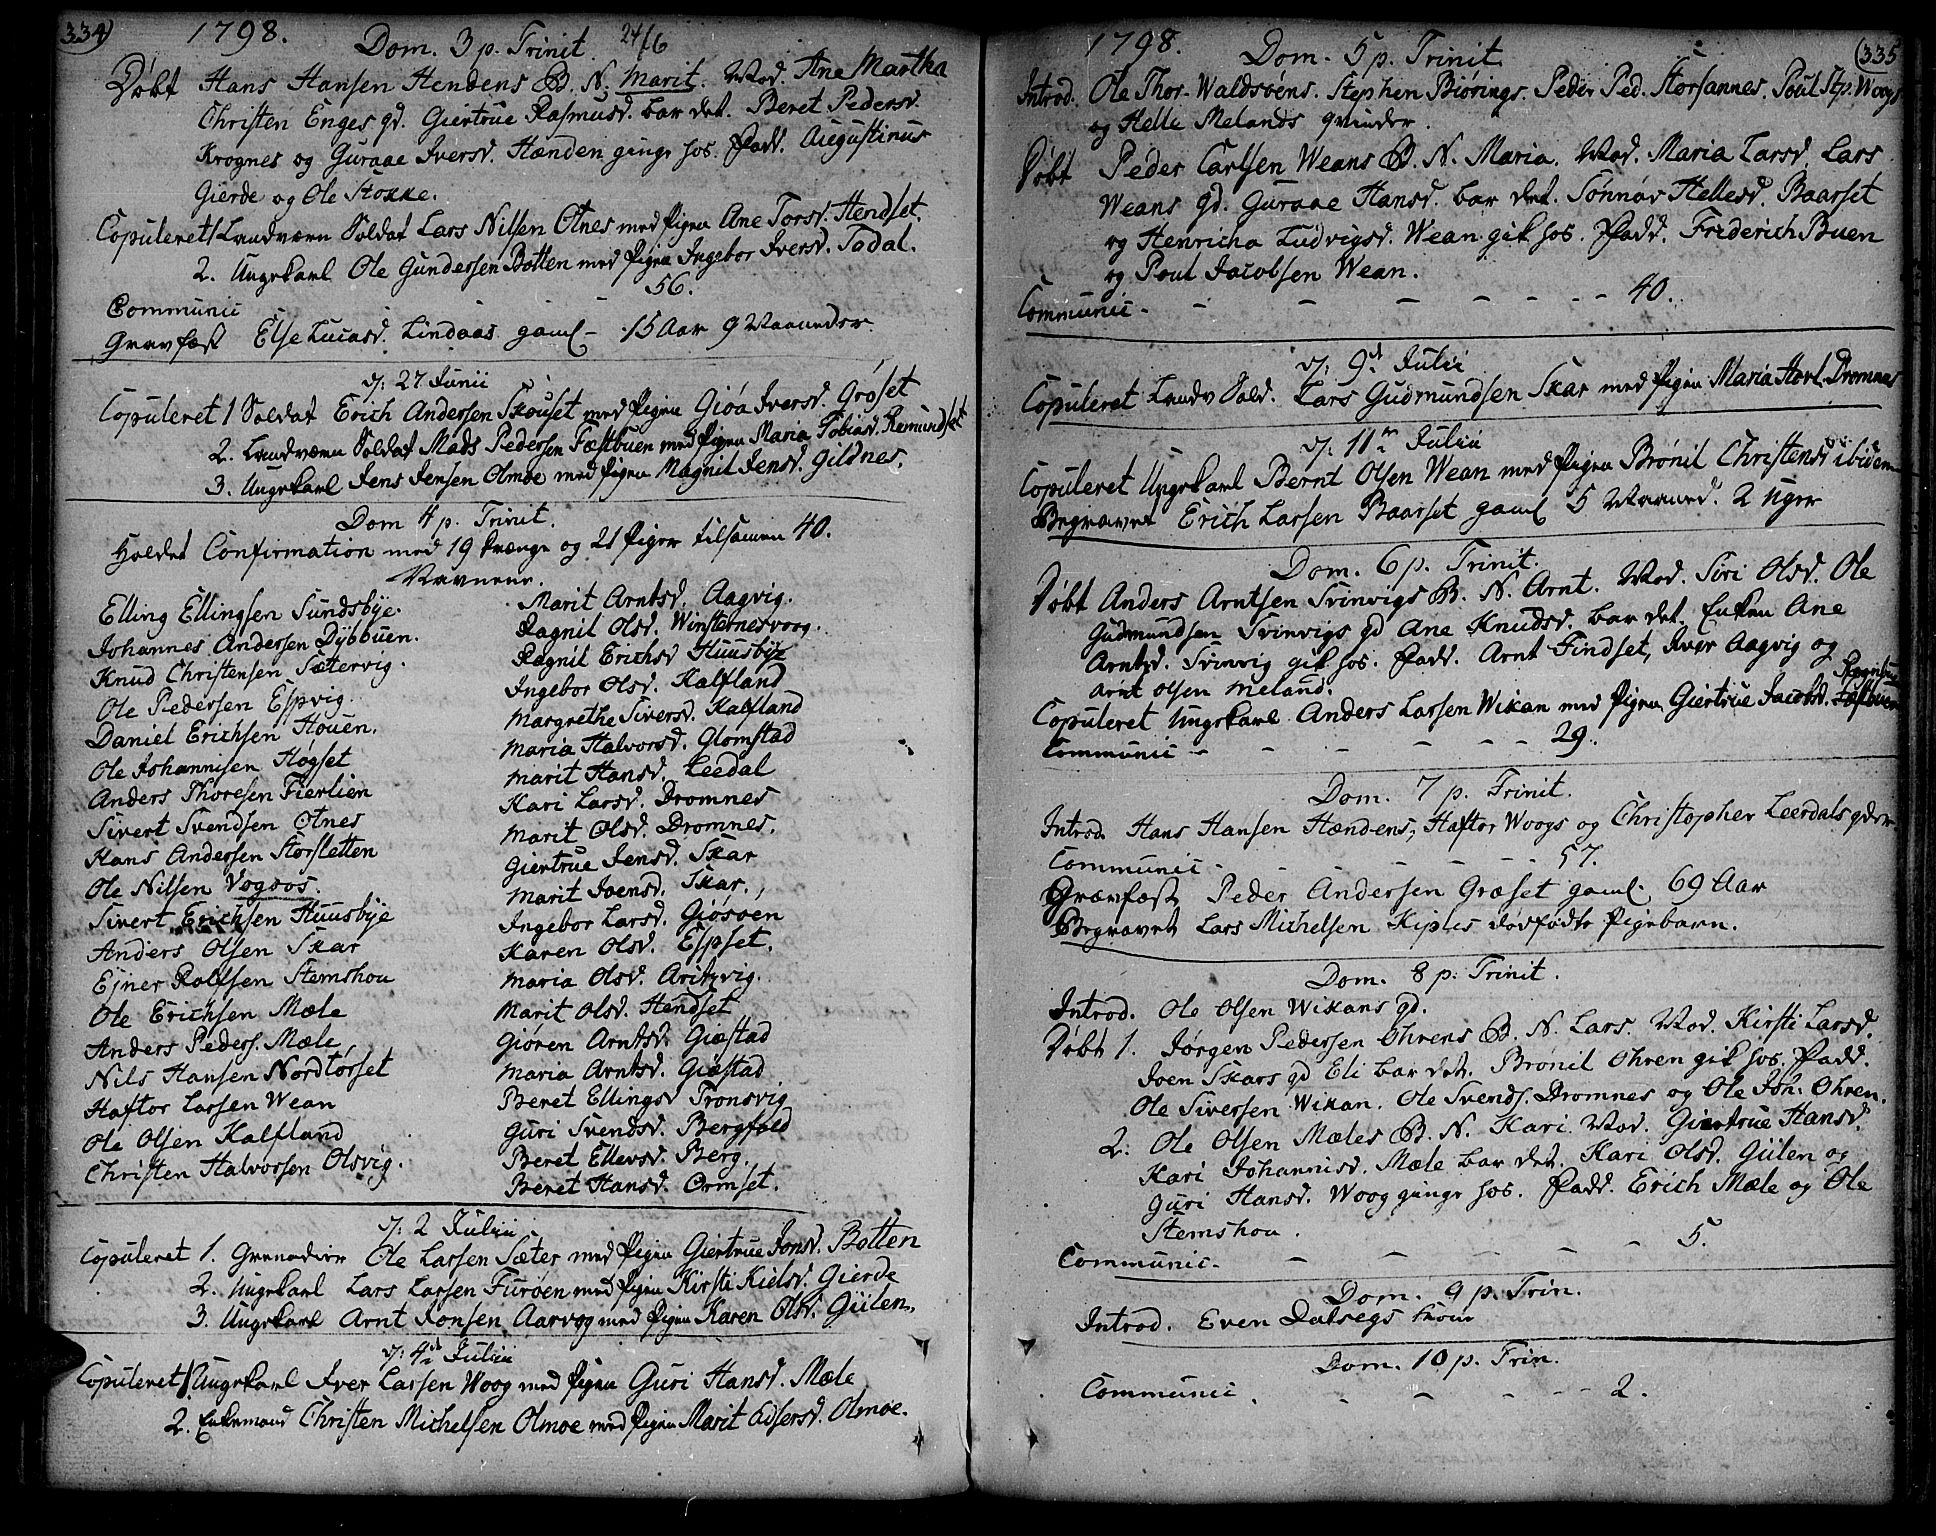 334) 1798. Dom. 3 p. Trinit. 24/6
Døbt Hans Hansen Hendens B. N. Marit. Mod. Ane Martha
Christen Enges gd. Giertrue Rasmusd. bar det. Beret Pedersd.
Krognes og Guraae Iversd. Hænden ginge hos. Fadd. Augustinus
Gierde og Ole Stokke.
Copuleret 1 Landværn Soldat Lars Nilsen Otnes med Pigen Ane Torsd. Hendset.
2. Ungekarl Ole Gundersen Botten med Pigen Ingebor Iversd. Todal.
Communic 56.
Gravfæst Else Lucasd. Lindaas gaml - 15 Aar 9 Maaneder
d: 27 Junii
Copuleret 1 Soldat Erich Andersen Skouset med Pigen Gióa Iversd. Grøset
2. Landværn Soldat Mads Pedersen Fæstbuen med Pigen Maria Tobiasd. Remundset
3. Ungekarl Jens Jensen Olmoe med Pigen Magnil Jensd. Gildnes.
Dom 4 p. Trinit.
Holdet Confirmation med 19 Drænge og 21 Piger tilsamen 40.
Navnene.
Elling Ellingsen Sundsbÿe.
Johannes Andersen Dÿbbuen.
Knud Christensen Sætervig.
Ole Pedersen Espvig.
Daniel Erichsen Houen.
Ole Johannisen Høgset
Anders Thoresen Fierlien
Sivert Svendsen Otnes
Hans Andersen Storsletten
Ole Nilsen Vogsos.
Sivert Erichsen Huusbÿe
Anders Olsen Skar
Ejner Rolfsen Stemshou
Ole Erichsen Mæle
Anders Peders. Mæle
Nils Hansen Nordtørset
Haftor Larsen Wean
Ole Olsen Kalfland
Christen Halvorsen Olsvig.
Marit Arntsd. Aagvig.
Ragnil Olsd. Winsternesvoog.
Ragnil Erichsd Huusbÿe
Ingebor Olsd. Kalfland
Margrethe Siversd. Kalfland
Maria Halvorsd. Glomstad
Marit Hansd. Leedal
Kari Larsd. Dromnes
Marit Olsd. Dromnes.
Giertrue Jensd. Skar
Marit Joensd. Skar.
Ingebor Larsd. Giøsøen
Karen Olsd. Espset.
Maria Olsd. Aritzvig.
Marit Olsd. Hendset
Giøren Arntsd. Giæstad
Maria Arntsd. Giæstad
Beret Ellingsd Tronsvig
Guri Svendsd. Bergfald
Beret Ellevsd. Berg.
Beret Hansd. Ormset.
d: 2 Julii
Copuleret 1. Grenadeer Ole Larsen Sæter med Pigen Giertrue Jonsd. Botten
2. Ungekarl Lars Larsen Furøen med Pigen Kirsti Kielsd. Gierde
3. Ungekarl Arnt Jonsen Aarvog med Pigen Karen Olsd. Gülen.
d: 4de Julii
Copuleret 1 Ungekarl Iver Larsen Woog med Pigen Guri Hansd. Mæle
2. Enkemand Christen Michelsen Olmoe med Pigen Marit Edsersd. Olmoe.
1798. Dom. 5 p. Trinit. (335
Introd. Ole Thor Waldsøens. Stephen Biørings. Peder Ped. Storsannes. Poul Stp. Woogs
og Helle Melands qvinder.
Døbt Peder Carlsen Weans B. N. Maria. Mod. Maria Larsd. Lars
Weans gd. Guraae Hansd. bar det. Sønnøv Hellesd. Baarset
og Henricha Ludvigsd. Wean gik hos. Fadd. Friderich Buen
og Poul Jacobsen Wean.
Communic. - - - - - - 40.
d: 9de Julii
Copuleret Landv Sold. Lars Gudmundsen Skar med Pigen Maria Havl. Dromnes
d: 11te Julii
Copuleret Ungekarl Bernt Olsen Wean med Pigen Brønil Christensd ibidem
Begravet Erich Larsen Baarset gaml 5 Maaned. 2 Uger
Dom. 6 p. Trinit.
Døbt Anders Arntsen Svinvigs B. N. Arnt. Mod. Siri Olsd. Ole
Gudmundsen Svinvigs gd Ane Knudsd. bar det. Enken Ane
Arntsd. Svinvig gik hos. Fadd. Arnt Findset, Iver Aagvig og
Arnt Olsen Meland.
Copuleret Ungekarl Anders Larsen Wikan med Pigen Giertrue Jacobsd.
Communic - - - - - 29.
Dom. 7 p. Trinit.
Introd. Hans Hansen Hændens, Haftor Woogs og Christopher Leerdals qder.
Communic - - - - 57.
Gravfæst Peder Andersen Græset gaml. 69 Aar
Begravet Lars Michelsen Kiples dødfødte Pigebarn.
Dom. 8 p. Trinit.
Introd. Ole Olsen Wikans gd.
Døbt 1. Jørgen Pedersen Ohrens B. N. Lars. Mod. Kirsti Larsd.
Joen Skars gd Eli bar det. Brønil Ohren gik hos. Fadd.
Ole Siversen Wikan. Ole Svends. Dromnes og Ole Joh. Ohren.
2: Ole Olsen Mæles B. N. Kari. Mod. Giertrue Hansd.
Kari Johannisd. Mæle bar det. Kari Olsd. Gülen og
Guri Hansd. Woog ginge hos. Fadd. Erich Mæle og Ole
Stemshou.
Communic. - - - - - - 5.
Dom. 9 p. Trin.
Introd. Even Dalsegs Kone
Dom. 10 p. Trin.
Communic. - - - - 2.